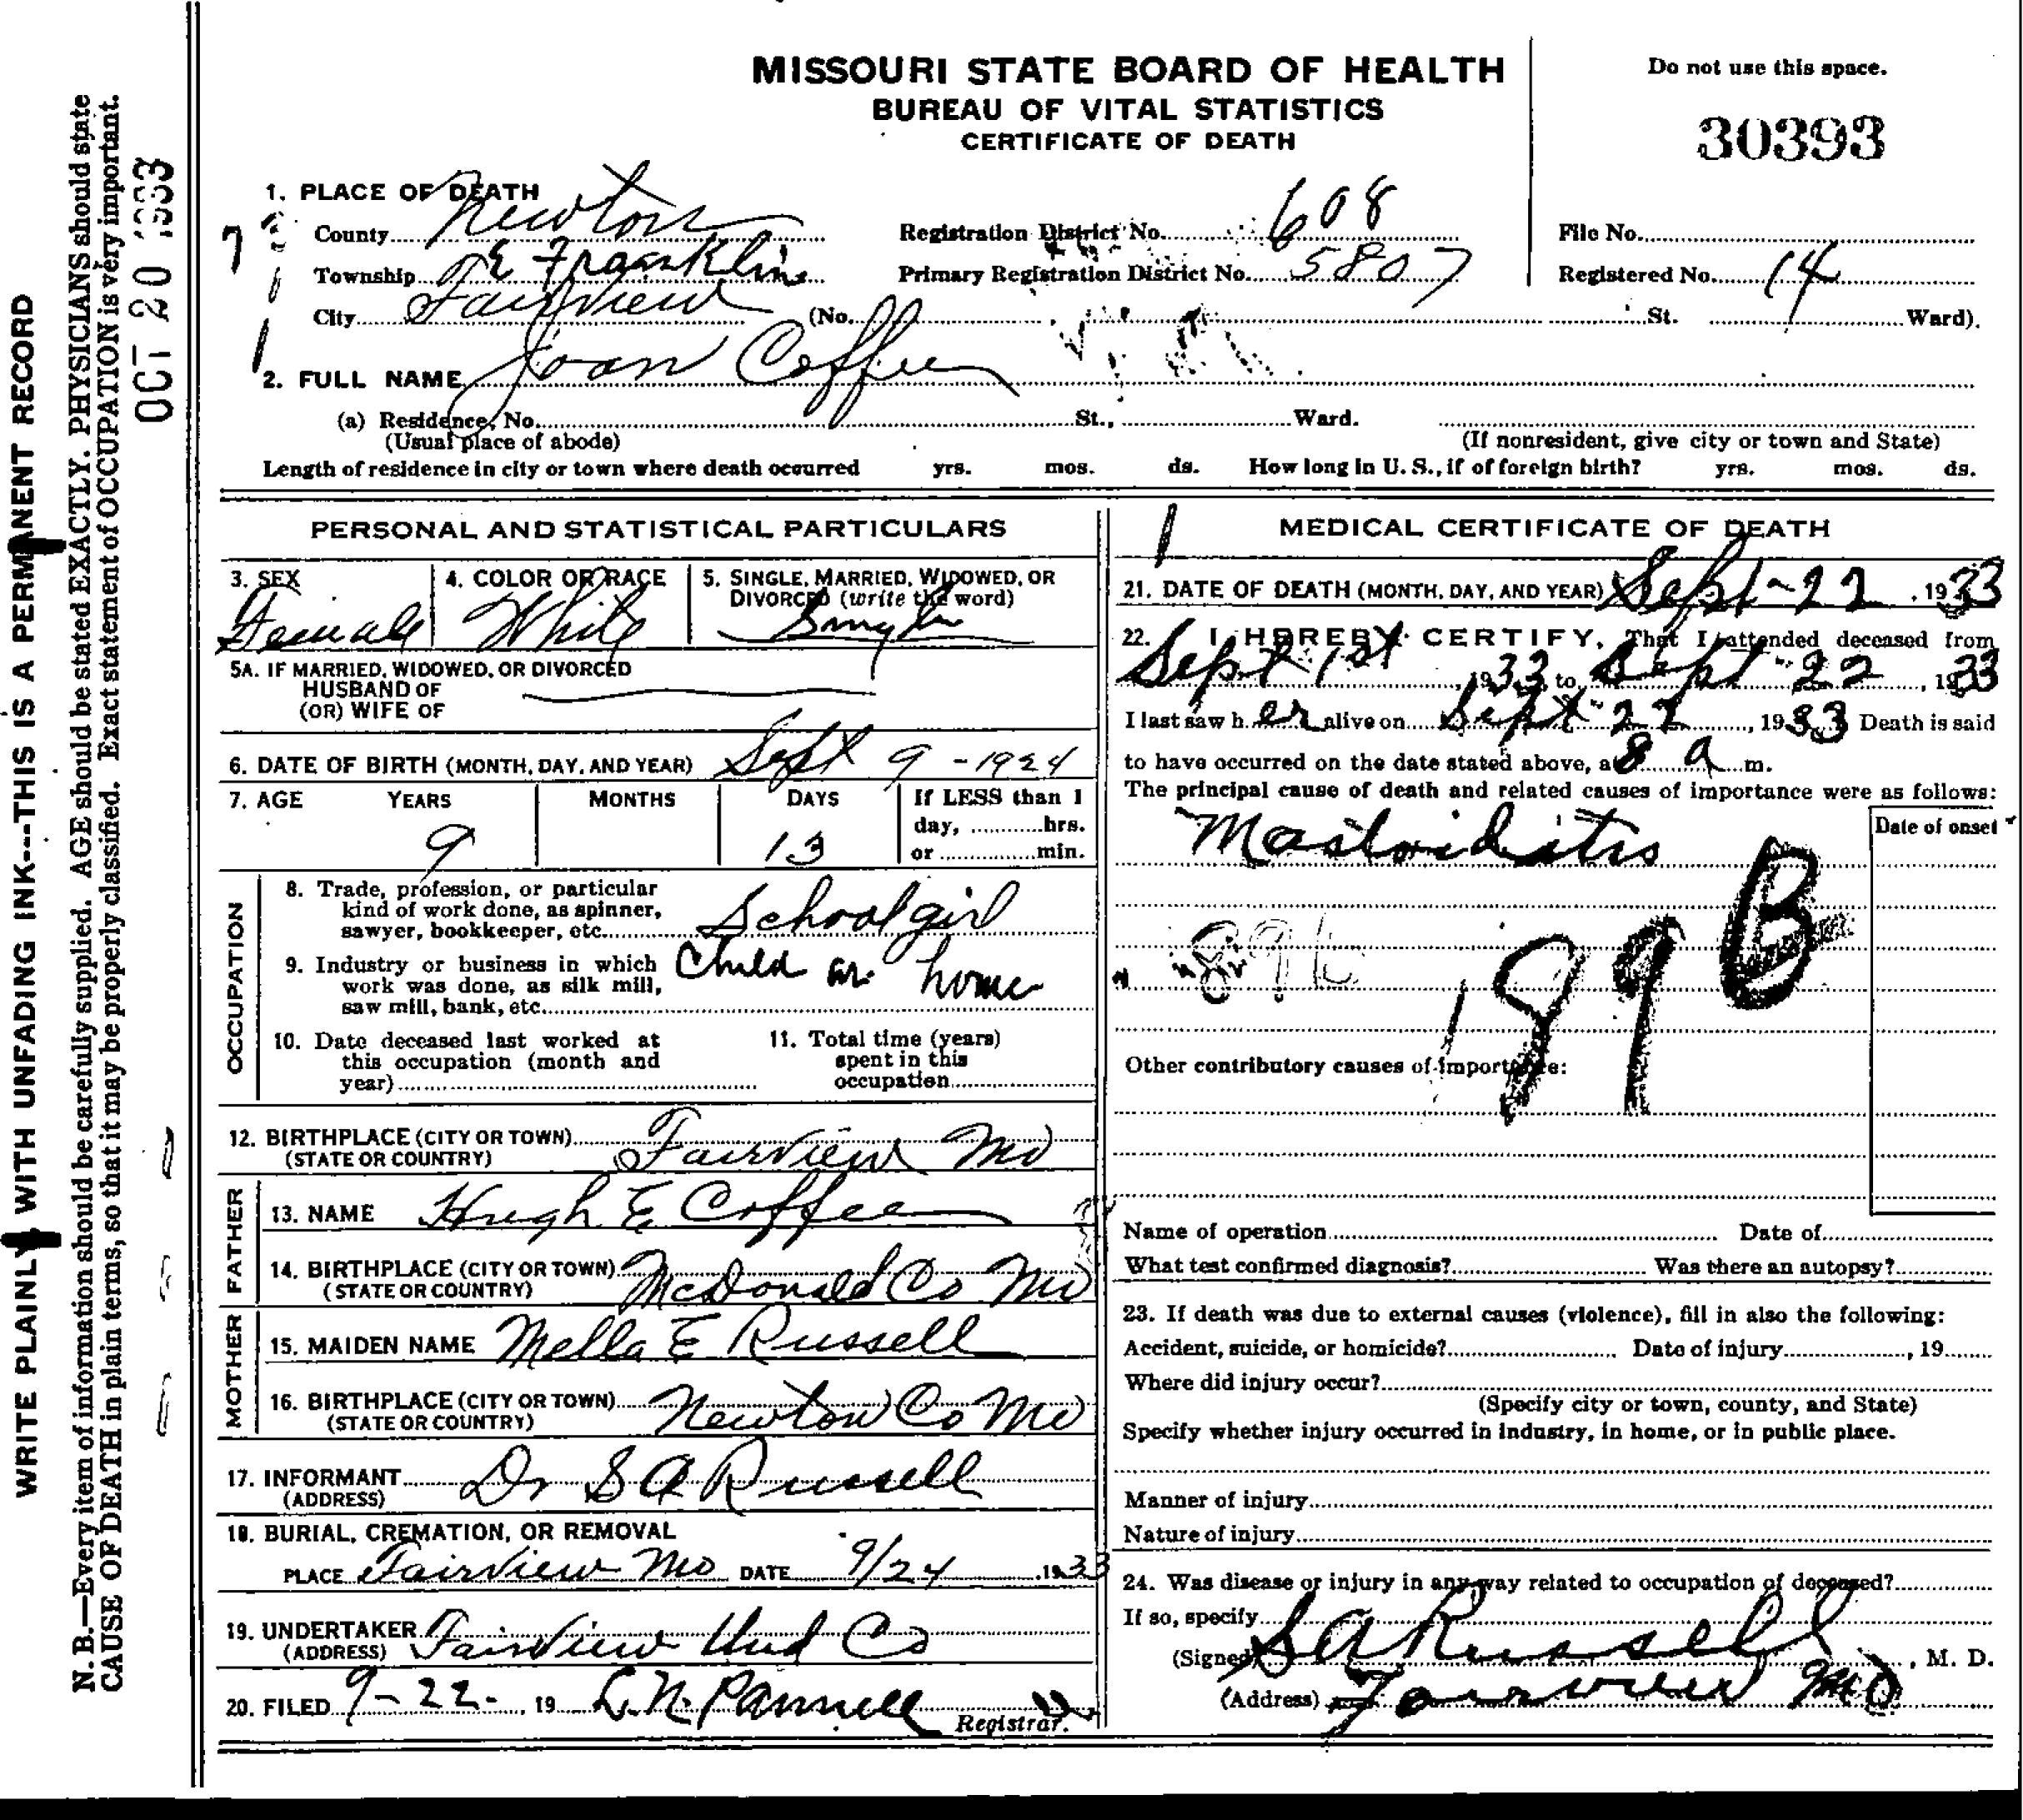 WRITE PLAINLY WITH UNFADING INK---THIS IS A PERMANENT RECORD
N. B.—Every item of information should be carefully supplied. AGE should be stated EXACTLY. PHYSICIANS should state
CAUSE OF DEATH in plain terms, so that it may be properly classified. Exact statement of OCCUPATION is very important.
OCT 20 1933
MISSOURI STATE BOARD OF HEALTH
BUREAU OF VITAL STATISTICS
CERTIFICATE OF DEATH
Do not use this space.
30393
1. PLACE OF DEATH
County Newton Registration District No. 608 File No.
Township E Franklin Primary Registration District No. 5807 Registered No. 14
City Fairview (No. St. Ward).
2. FULL NAME Joan Coffee
(a) Residence, No. St., Ward.
(Usual place of abode) (If nonresident, give city or town and State)
Length of residence in city or town where death occurred yrs. mos. ds. How long in U. S., if of foreign birth? yrs. mos. ds.
PERSONAL AND STATISTICAL PARTICULARS
3. SEX 4. COLOR OR RACE 5. SINGLE, MARRIED, WIDOWED, OR
DIVORCED (write the word)
Female White Single
5A. IF MARRIED, WIDOWED, OR DIVORCED
HUSBAND OF
(OR) WIFE OF
6. DATE OF BIRTH (MONTH, DAY, AND YEAR) Sept 9 - 1924
7. AGE YEARS MONTHS DAYS If LESS than 1
day, hrs.
or min.
9 13
OCCUPATION
8. Trade, profession, or particular
kind of work done, as spinner,
sawyer, bookkeeper, etc. School girl
9. Industry or business in which
work was done, as silk mill,
saw mill, bank, etc. Child at home
10. Date deceased last worked at
this occupation (month and
year)
11. Total time (years)
spent in this
occupation
12. BIRTHPLACE (CITY OR TOWN) Fairview Mo
(STATE OR COUNTRY)
FATHER
13. NAME Hugh E Coffee
14. BIRTHPLACE (CITY OR TOWN) McDonald Co Mo
(STATE OR COUNTRY)
MOTHER
15. MAIDEN NAME Mella E Russell
16. BIRTHPLACE (CITY OR TOWN) Newton Co Mo
(STATE OR COUNTRY)
17. INFORMANT Dr S A Russell
(ADDRESS)
18. BURIAL, CREMATION, OR REMOVAL
PLACE Fairview Mo DATE 9/24 1933
19. UNDERTAKER Fairview Und Co
(ADDRESS)
20. FILED 9-22- , 19 Pannell
Registrar.
MEDICAL CERTIFICATE OF DEATH
21. DATE OF DEATH (MONTH, DAY, AND YEAR) Sept-22 , 1933
22. I HEREBY CERTIFY, That I attended deceased from
Sept 1st , 1933, to Sept 22 , 1933
I last saw her alive on Sept 22 , 1933 Death is said
to have occurred on the date stated above, at 8 a m.
The principal cause of death and related causes of importance were as follows:
Date of onset
Mastoiditis
89b
199 B
Other contributory causes of importance:
Name of operation Date of
What test confirmed diagnosis? Was there an autopsy?
23. If death was due to external causes (violence), fill in also the following:
Accident, suicide, or homicide? Date of injury , 19
Where did injury occur?
(Specify city or town, county, and State)
Specify whether injury occurred in industry, in home, or in public place.
Manner of injury
Nature of injury
24. Was disease or injury in any way related to occupation of deceased?
If so, specify
(Signed) S A Russell , M. D.
(Address) Fairview Mo